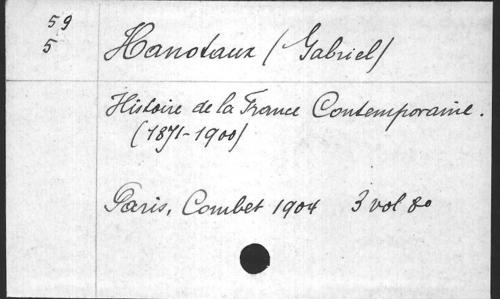 59
5
Hanotaux (Gabriel)
Histoire de la France Contemporaine.
(1871-1900)
Paris, Combet 1904 3 vol 8o